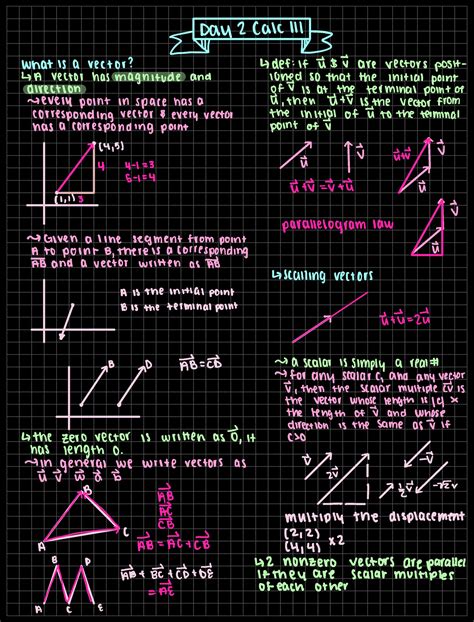 Day 2 Calc III
What is a vector?
↳ A vector has magnitude and
direction
↝ every point in space has a
corresponding vector & every vector
has a corresponding point
(4,5)
4
4-1=3
5-1=4
(1,1) 3
↝ Given a line segment from point
A to point B, there is a corresponding
AB and a vector written as AB
A is the initial point
B is the terminal point
B D
AB = CD
A C
↳ the zero vector is written as 0, it
has length 0.
↝ in general we write vectors as
u v w a b
B
A
C
AB
AC
CB
AB = AC + CB
B D
A C E
AB + BC + CD + DE
= AE
↳ def: if u & v are vectors posit-
ioned so that the initial point
of v is at the terminal point of
u, then u+v is the vector from
the initial of u to the terminal
point of v
u
v
u+v = v+u
u+v
v
u
parallelogram law
v
u
↳ scaling vectors
u+u = 2u
↝ a scalar is simply a real #
↝ for any scalar c, and any vector
v, then the scalar multiple cv is
the vector whose length is |c| x
the length of v and whose
direction is the same as v if
c>0
v
2v
-v
½v
-√2v
multiply the displacement
(2,2)
(4,4) x2
↳ 2 nonzero vectors are parallel
if they are scalar multiples
of each other